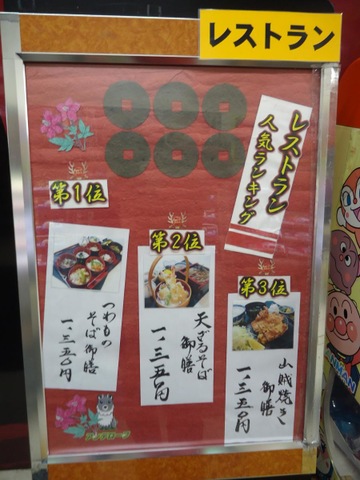 レストラン
レストラン
人気ランキング
第1位
つわもの
そば御膳
一、三五〇円
第2位
天ざるそば
御膳
一、三五〇円
第3位
山賊焼き
御膳
一、三五〇円